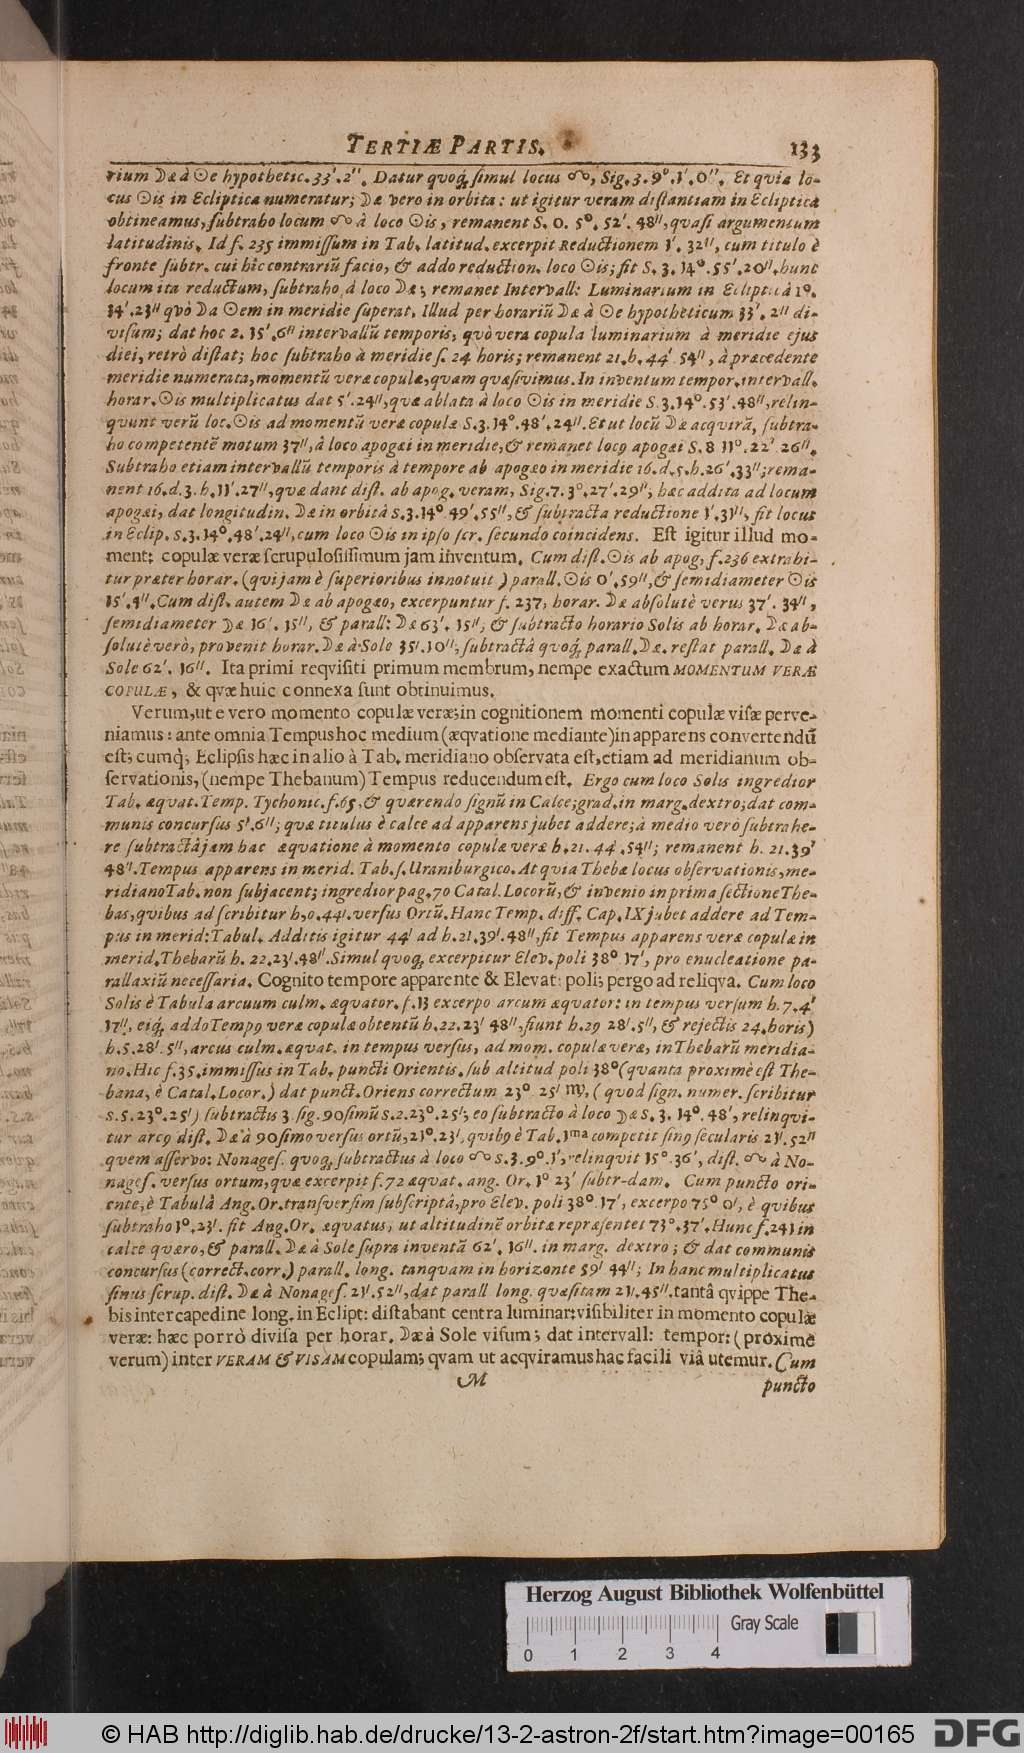 TERTIÆ PARTIS. 133
rium ☽æ à ☉e hypothetic. 33'. 2''. Datur quoq; simul locus ☊, Sig. 3. 9°. 1'. 0''. Et quia lo-
cus ☉is in Ecliptica numeratur; ☽æ vero in orbita: ut igitur veram distantiam in Ecliptica
obtineamus, subtraho locum ☊ à loco ☉is, remanent S. 0. 5°. 52'. 48'', quasi argumentum
latitudinis. Id f. 235 immissum in Tab. latitud. excerpit Reductionem 1'. 32'', cum titulo è
fronte subtr. cui hîc contrariũ facio, & addo reduction. loco ☉is; fit S. 3. 14°. 55'. 20''. hunc
locum ita reductum, subtraho à loco ☽æ; remanet Intervall: Luminarium in Ecliptica 1°.
14'. 23'' quò ☽a ☉em in meridie superat. Illud per horariũ ☽æ à ☉e hypotheticum 33'. 2'' di-
visum; dat hoc 2. 15'. 6'' intervallũ temporis, quò vera copula luminarium à meridie ejus
diei, retrò distat; hoc subtraho à meridie s. 24 horis; remanent 21. h. 44'. 54'', à præcedente
meridie numerata, momentũ veræ copulæ, quam quæsivimus. In inventum tempor. intervall.
horar. ☉is multiplicatus dat 5'. 24'', quæ ablata à loco ☉is in meridie S. 3. 14°. 53'. 48'', relin-
quunt verũ loc. ☉is ad momentũ veræ copulæ S. 3. 14°. 48'. 24''. Et ut locũ ☽æ acquirã, subtra-
ho competentẽ motum 37'', à loco apogæi in meridie, & remanet locꝰ apogæi S. 8 11°. 22' 26''.
Subtraho etiam intervallũ temporis à tempore ab apogæo in meridie 16. d. 5. h. 26'. 33''; rema-
nent 16. d. 3. h. 11'. 27'', quæ dant dist. ab apog. veram, Sig. 7. 3°. 27'. 29''; hæc addita ad locum
apogæi, dat longitudin. ☽æ in orbitâ S. 3. 14° 49'. 55'', & subtracta reductione 1'. 31'', fit locus
in Eclip. S. 3. 14°. 48'. 24'', cum loco ☉is in ipso scr. secundo coincidens. Est igitur illud mo-
ment: copulæ veræ scrupulosissimum jam inventum. Cum dist. ☉is ab apog, f. 236 extrahi-
tur præter horar. (qui jam è superioribus innotuit) parall. ☉is 0'. 59'', & semidiameter ☉is
15'. 4''. Cum dist. autem ☽æ ab apogæo, excerpuntur f. 237, horar. ☽æ absolutè verus 37'. 34'',
semidiameter ☽æ 16'. 15'', & parall: ☽æ 63'. 15''; & subtracto horario Solis ab horar. ☽æ ab-
solutè verò, provenit horar. ☽æ à Sole 35'. 10''; subtractâ quoq; parall. ☽æ. restat parall. ☽æ à
Sole 62'. 16''. Ita primi reqvisiti primum membrum, nempe exactum MOMENTUM VERÆ
COPULÆ, & qvæ huic connexa sunt obtinuimus.
Verum, ut e vero momento copulæ veræ; in cognitionem momenti copulæ visæ perve-
niamus: ante omnia Tempus hoc medium (æqvatione mediante) in apparens convertendũ
est; cumq; Eclipsis hæc in alio à Tab. meridiano observata est, etiam ad meridianum ob-
servationis, (nempe Thebanum) Tempus reducendum est. Ergo cum loco Solis ingredior
Tab. æquat. Temp. Tychonic. f. 65, & quærendo signũ in Calce; grad. in marg. dextro; dat com-
munis concursus 5'. 6''; quæ titulus è calce ad apparens jubet addere; à medio verò subtrahe-
re subtractâ jam hac æquatione à momento copulæ veræ h. 21. 44'. 54''; remanent h. 21. 39'
48''. Tempus apparens in merid. Tab. s. Uraniburgico. At quia Thebæ locus observationis, me-
ridiano Tab. non subjacent; ingredior pag. 70 Catal. Locorũ, & invenio in prima sectione The-
bas, quibus ad scribitur h, 0. 44'. versus Ortũ. Hanc Temp. diff. Cap. IX jubet addere ad Tem-
pus in merid: Tabul. Additis igitur 44' ad h. 21. 39'. 48'', fit Tempus apparens veræ copulæ in
merid. Thebarũ h. 22. 23'. 48''. Simul quoq; excerpitur Elev. poli 38°. 17', pro enucleatione pa-
rallaxiũ necessaria. Cognito tempore apparente & Elevat: poli; pergo ad reliqva. Cum loco
Solis è Tabula arcuum culm. æquator. f. 13 excerpo arcum æquator: in tempus versum h. 7. 4'
17'', eiq; addo Tempꝰ veræ copulæ obtentũ h. 22. 23' 48'', fiunt h. 29 28'. 5'', & rejectis 24. horis)
h. 5. 28'. 5'', arcus culm. æquat. in tempus versus, ad mom. copulæ veræ, in Thebarũ meridia-
no. Hic f. 35. immissus in Tab. puncti Orientis. sub altitud poli 38° (quanta proximè est The-
bana, è Catal. Locor.) dat punct. Oriens correctum 23° 25' ♍, (quod sign. numer. scribitur
S. 5. 23°. 25') subtractis 3 sig. 90simũ S. 2. 23°. 25'; eo subtracto à loco ☽æ S. 3. 14°. 48', relinqui-
tur arcꝰ dist. ☽æ à 90simo versus ortũ, 21°. 23', quibꝰ è Tab. 1ma competit sinꝰ secularis 21'. 52''
quem asservo: Nonages. quoq; subtractus à loco ☊ S. 3. 9°. 1', relinquit 15°. 36', dist. ☊ à No-
nages. versus ortum, quæ excerpit f. 72 æquat. ang. Or. 1° 23' subtr-dam. Cum puncto ori-
ente, è Tabulâ Ang. Or. transversim subscriptâ, pro Elev. poli 38°. 17', excerpo 75° 0', è quibus
subtraho 1°. 23'. fit Ang. Or. æquatus, ut altitudinẽ orbitæ repræsentet 73°. 37'. Hunc f. 241 in
calce quæro, & parall. ☽æ à Sole supra inventã 62'. 16''. in marg. dextro; & dat communis
concursus (correct. corr.) parall. long. tanquam in horizonte 59' 44''; In hanc multiplicatus
sinus scrup. dist. ☽æ à Nonages. 21'. 52'', dat parall long. quæsitam 21'. 45''. tantâ qvippe The-
bis intercapedine long. in Eclipt: distabant centra luminar: visibiliter in momento copulæ
veræ: hæc porrò divisa per horar. ☽æ à Sole visum; dat intervall: tempor: (proximè
verum) inter VERAM & VISAM copulam; qvam ut acqviramus hac facili viâ utemur. Cum
M puncto
Herzog August Bibliothek Wolfenbüttel
Gray Scale
0 1 2 3 4
© HAB http://diglib.hab.de/drucke/13-2-astron-2f/start.htm?image=00165 DFG